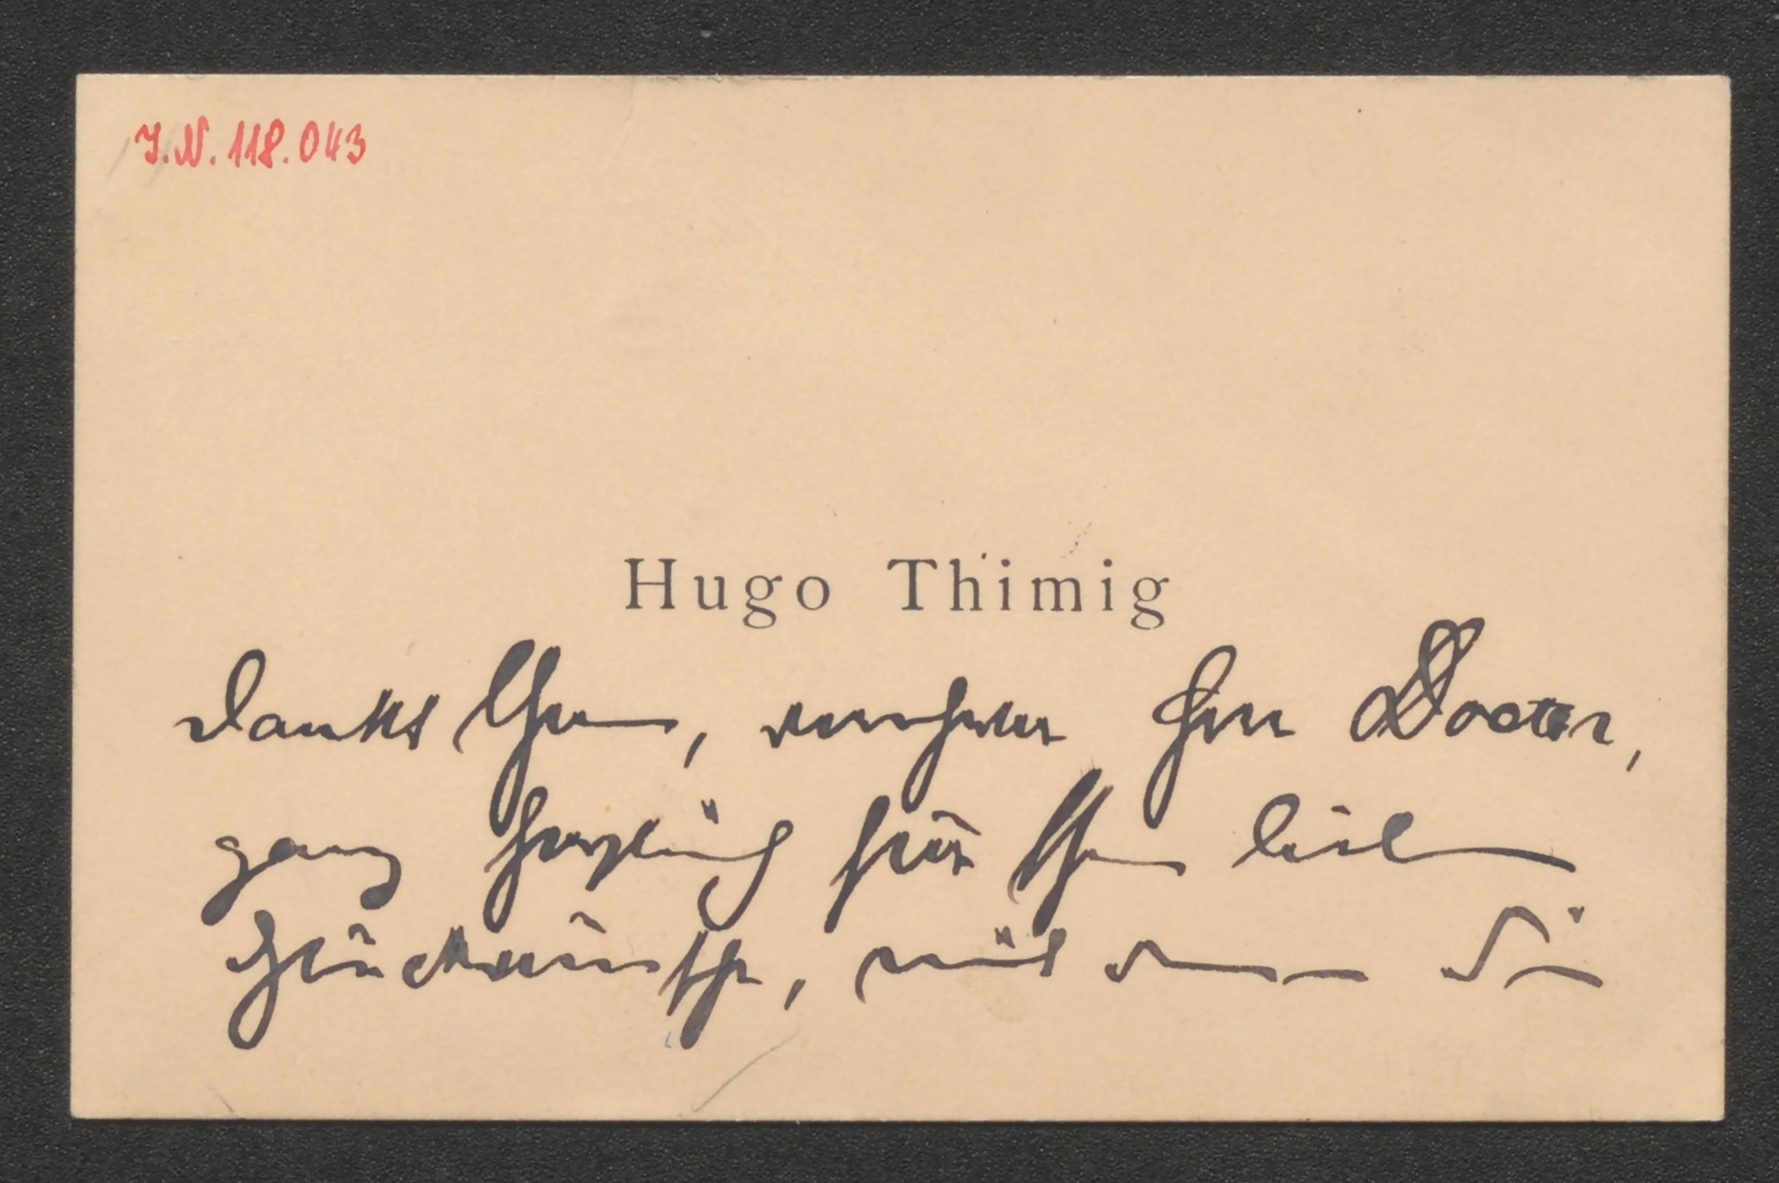 I.N. 118.043
Hugo Thimig
dankt Ihnen, verehrter Herr Doctor,
ganz herzlich für Ihre lieben
Glückwünsche, mit denen Sie